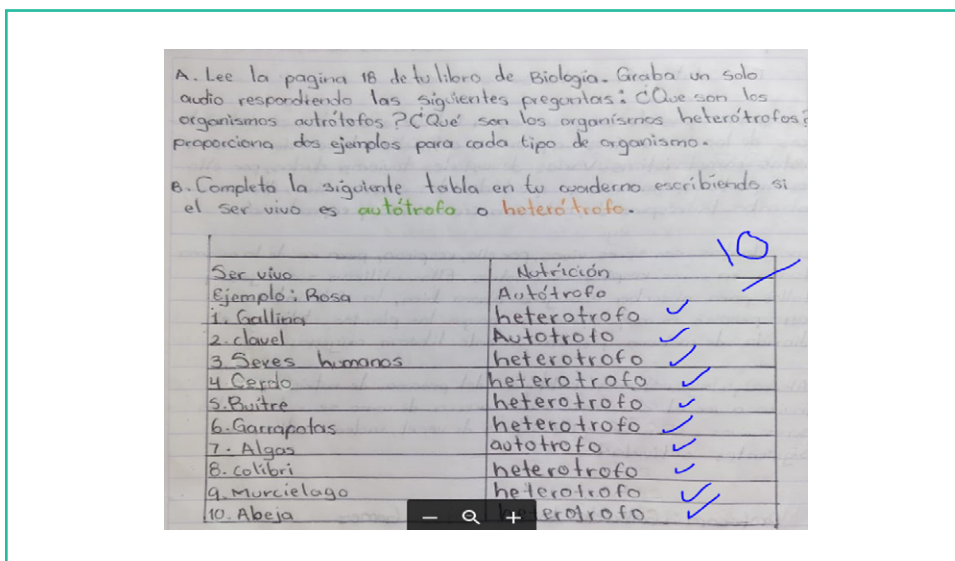 A. Lee la pagina 18 de tu libro de Biologia. Graba un solo
audio respondiendo las siguientes preguntas: ¿Que son los
organismos autrótofos? ¿Qué son los organismos heterótrofos?
proporciona dos ejemplos para cada tipo de organismo.
B. Completa la siguiente tabla en tu cuaderno escribiendo si
el ser vivo es autótrofo o heterótrofo.
10
Ser vivo Nutrición
Ejemplo: Rosa Autótrofo
1. Gallina heterotrofo
2. clavel Autotrofo
3. Seres humanos heterotrofo
4. Cerdo heterotrofo
5. Buitre heterotrofo
6. Garrapatas heterotrofo
7. Algas autotrofo
8. colibri heterotrofo
9. Murcielago heterotrofo
10. Abeja heterotrofo